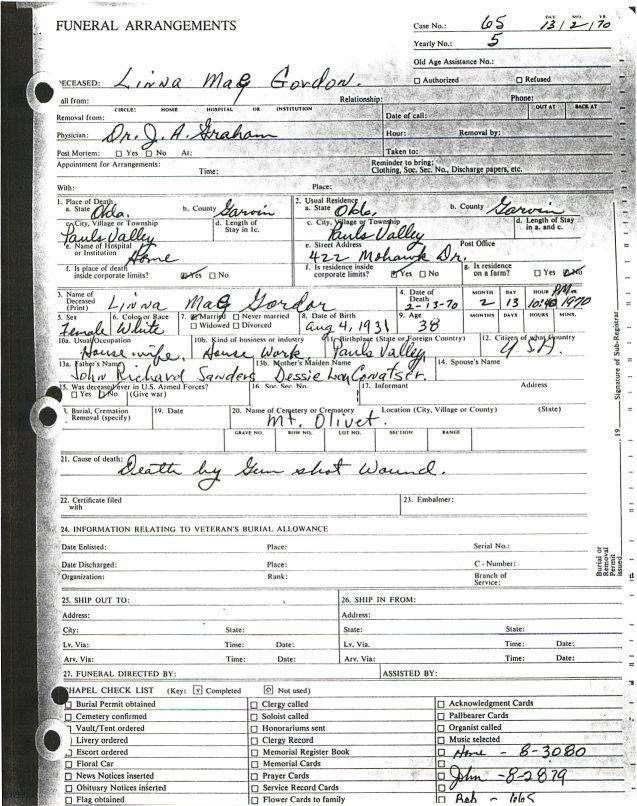 FUNERAL ARRANGEMENTS
Case No.: 65 DAY MO. YR. 13/2/70
Yearly No.: 5
Old Age Assistance No.:
DECEASED: Linna Mae Gordon. Authorized Refused
all from: Relationship: Phone:
CIRCLE: HOME HOSPITAL OR INSTITUTION OUT AT BACK AT
Removal from: Date of call:
Physician: Dr. J. A. Graham Hour: Removal by:
Post Mortem: Yes No At: Taken to:
Appointment for Arrangements: Reminder to bring:
Time: Clothing, Soc. Sec. No., Discharge papers, etc.
With: Place:
1. Place of Death 2. Usual Residence
a. State Okla. b. County Garvin a. State Okla. b. County Garvin
c. City, Village or Township d. Length of Stay in 1c. c. City, Village or Township d. Length of Stay in a. and c.
Pauls Valley Pauls Valley
e. Name of Hospital or Institution Home e. Street Address Post Office
422 Mohawk Dr.
f. Is place of death inside corporate limits? Yes No f. Is residence inside corporate limits? Yes No g. Is residence on a farm? Yes No
3. Name of Deceased (Print) Linna Mae Gordon 4. Date of Death 2-13-70 MONTH DAY HOUR YEAR
2 13 10:40 PM 1970
5. Sex 6. Color or Race 7. Married Never married 8. Date of Birth 9. Age MONTHS DAYS HOURS MINS.
Female White Widowed Divorced Aug 4, 1931 38
10a. Usual Occupation 10b. Kind of business or industry 11. Birthplace (State or Foreign Country) 12. Citizen of what Country
House wife, House Work Pauls Valley, U.S.A.
13a. Father's Name 13b. Mother's Maiden Name 14. Spouse's Name
John Richard Sanders Dessie
15. Was deceased ever in U.S. Armed Forces? 16. Soc. Sec. No. 17. Informant Address
Yes No (Give war)
18. Burial, Cremation Removal (specify) 19. Date 20. Name of Cemetery or Crematory Location (City, Village or County) (State)
Mt. Olivet.
GRAVE NO. ROW NO. LOT NO. SECTION RANGE
21. Cause of death:
Death by Gun shot Wound.
22. Certificate filed with 23. Embalmer:
24. INFORMATION RELATING TO VETERAN'S BURIAL ALLOWANCE
Date Enlisted: Place: Serial No.:
Date Discharged: Place: C - Number:
Organization: Rank: Branch of Service:
25. SHIP OUT TO: 26. SHIP IN FROM:
Address: Address:
City: State: State: State:
Lv. Via: Time: Date: Lv. Via. Time: Date:
Arv. Via: Time: Date: Arv. Via: Time: Date:
27. FUNERAL DIRECTED BY: ASSISTED BY:
CHAPEL CHECK LIST (Key: v Completed o Not used)
Burial Permit obtained Clergy called Acknowledgment Cards
Cemetery confirmed Soloist called Pallbearer Cards
Vault/Tent ordered Honorariums sent Organist called
Livery ordered Clergy Record Music selected
Escort ordered Memorial Register Book Home - 8-3080
Floral Car Memorial Cards
News Notices inserted Prayer Cards John - 8-2879
Obituary Notices inserted Service Record Cards
Flag obtained Flower Cards to family Bob - 665
Signature of Sub-Registrar
, 19
Burial or Removal Permit issued